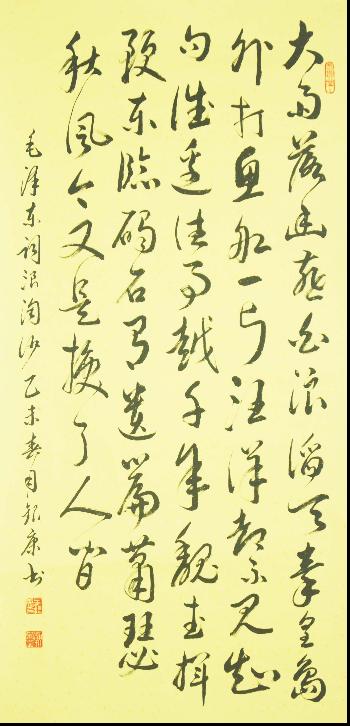 大雨落幽燕白浪滔天秦皇岛
外打鱼船一片汪洋都不见知
向谁边往事越千年魏武挥
鞭东临碣石有遗篇萧瑟
秋风今又是换了人间
毛泽东词浪淘沙乙未春康书